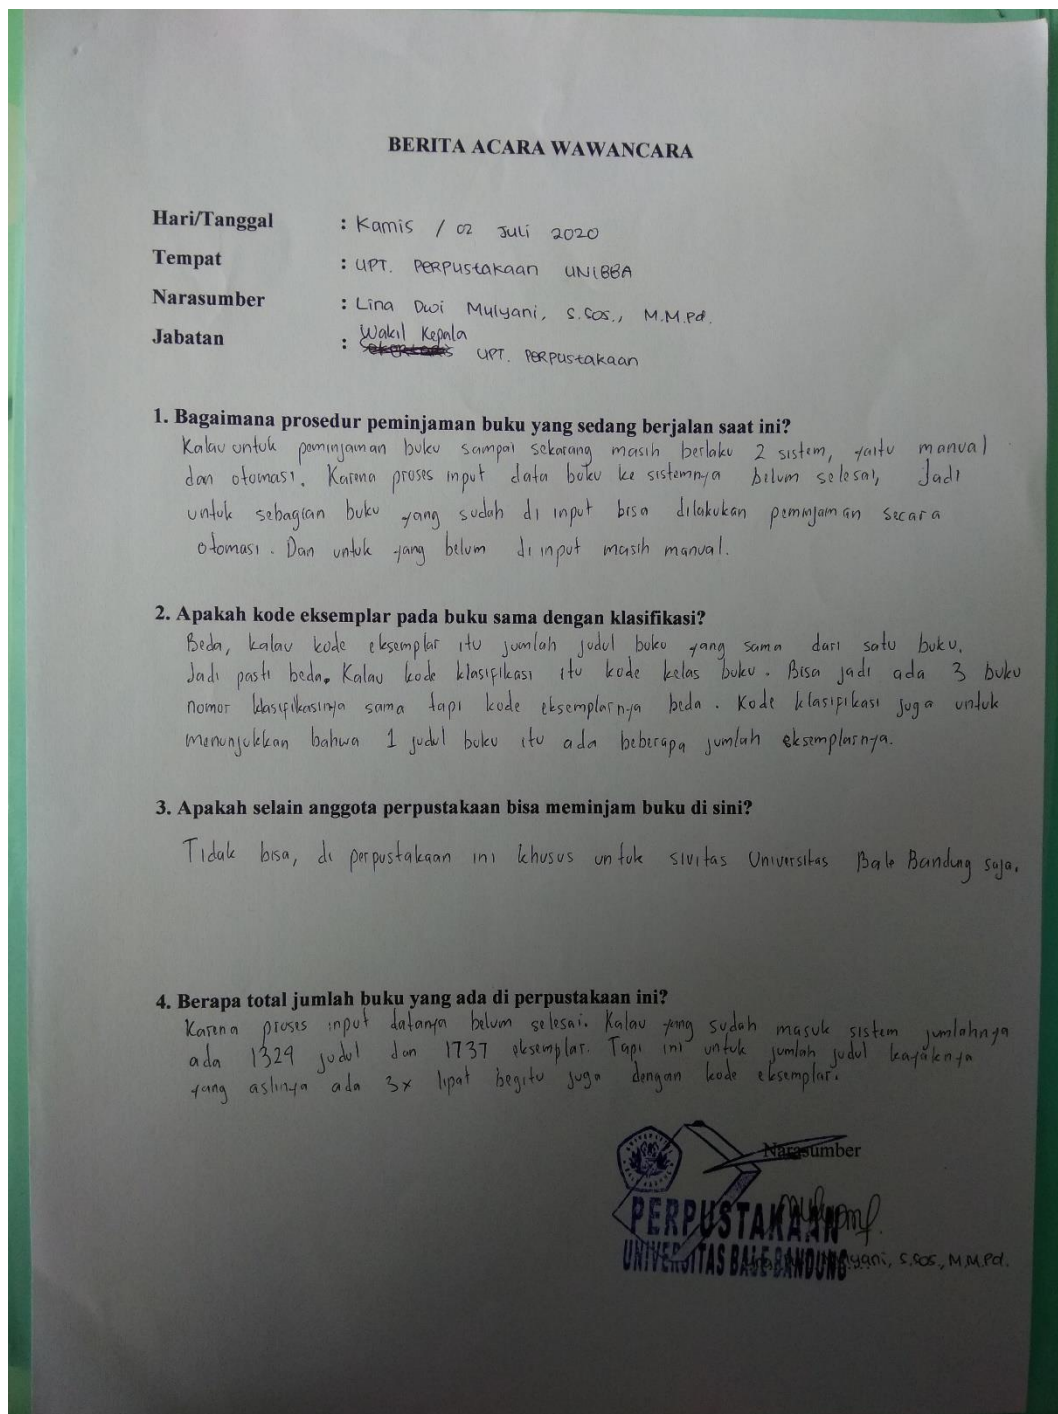 BERITA ACARA WAWANCARA
Hari/Tanggal : Kamis / 02 Juli 2020
Tempat : UPT. Perpustakaan UNIBBA
Narasumber : Lina Dwi Mulyani, S.Sos., M.M.Pd.
Wakil Kepala
Jabatan : UPT. Perpustakaan
1. Bagaimana prosedur peminjaman buku yang sedang berjalan saat ini?
Kalau untuk peminjaman buku sampai sekarang masih berlaku 2 sistem, yaitu manual
dan otomasi. Karena proses input data buku ke sistemnya belum selesai, Jadi
untuk sebagian buku yang sudah di input bisa dilakukan peminjaman secara
otomasi. Dan untuk yang belum di input masih manual.
2. Apakah kode eksemplar pada buku sama dengan klasifikasi?
Beda, kalau kode eksemplar itu jumlah judul buku yang sama dari satu buku.
Jadi pasti beda. Kalau kode klasifikasi itu kode kelas buku. Bisa jadi ada 3 buku
nomor klasifikasinya sama tapi kode eksemplarnya beda. Kode klasifikasi juga untuk
menunjukkan bahwa 1 judul buku itu ada beberapa jumlah eksemplarnya.
3. Apakah selain anggota perpustakaan bisa meminjam buku di sini?
Tidak bisa, di perpustakaan ini khusus untuk sivitas Universitas Bale Bandung saja.
4. Berapa total jumlah buku yang ada di perpustakaan ini?
Karena proses input datanya belum selesai. Kalau yang sudah masuk sistem jumlahnya
ada 1329 judul dan 1737 eksemplar. Tapi ini untuk jumlah judul kayaknya
yang aslinya ada 3x lipat begitu juga dengan kode eksemplar.
Narasumber
PERPUSTAKAAN
UNIVERSITAS BALE BANDUNG
yani, S.Sos., M.M.Pd.